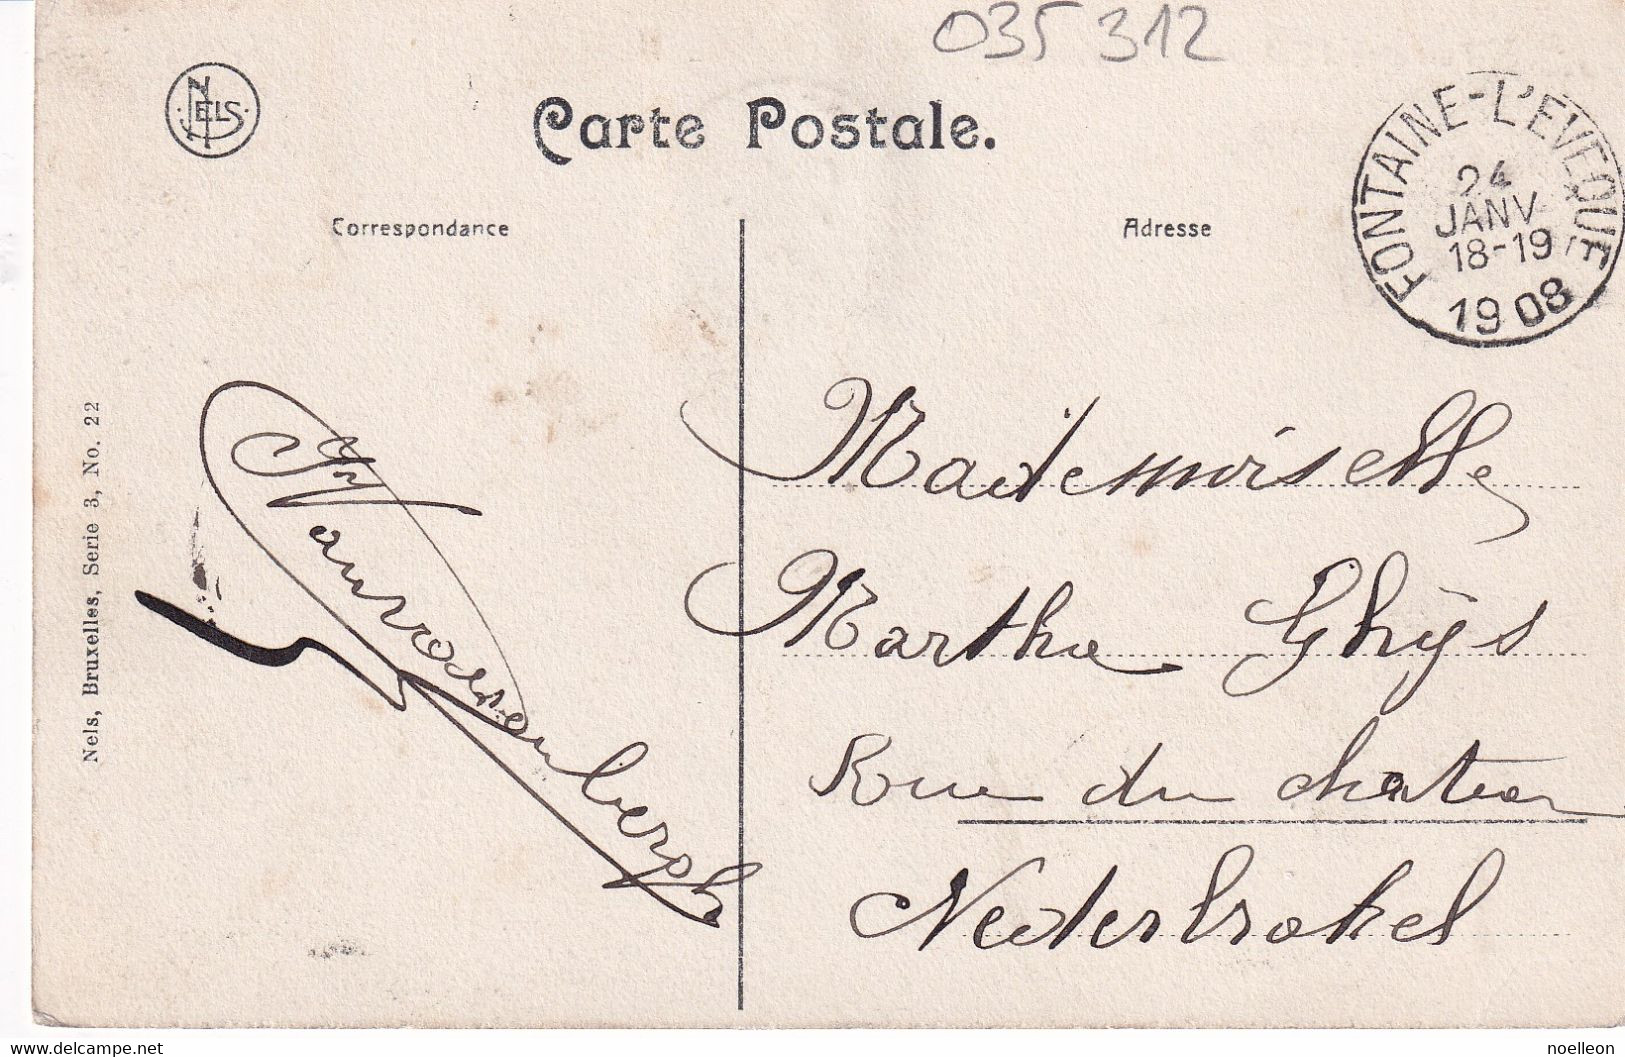 035 312
NELS
Carte Postale.
Correspondance
Adresse
FONTAINE-L'EVEQUE
24
JANV
18-19
1908
Nels, Bruxelles, Serie 3, No. 22
Mademoiselle
Marthe Ghÿs
Rue du chateau
Nederbrakel
www.delcampe.net
noelleon